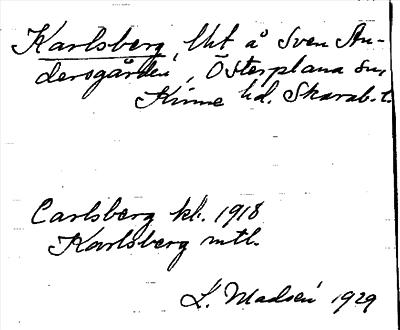 Karlsberg, lht å Sven An-
dersgården, Österplana sn,
Kinne hd. Skarab. l.
Carlsberg kb. 1918
Karlsberg mtl.
L. Madsén 1929